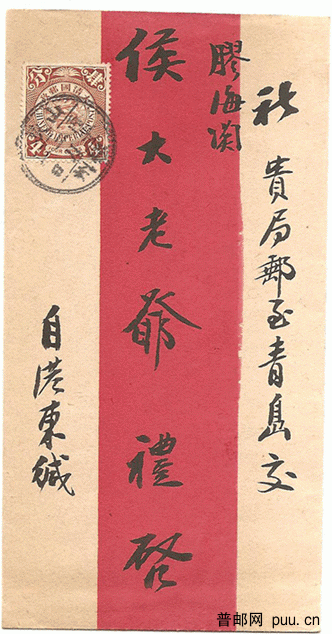 祈貴局郵至青島交
膠海関
侯大老爺禮啓
自港東緘
普邮网 puu.cn